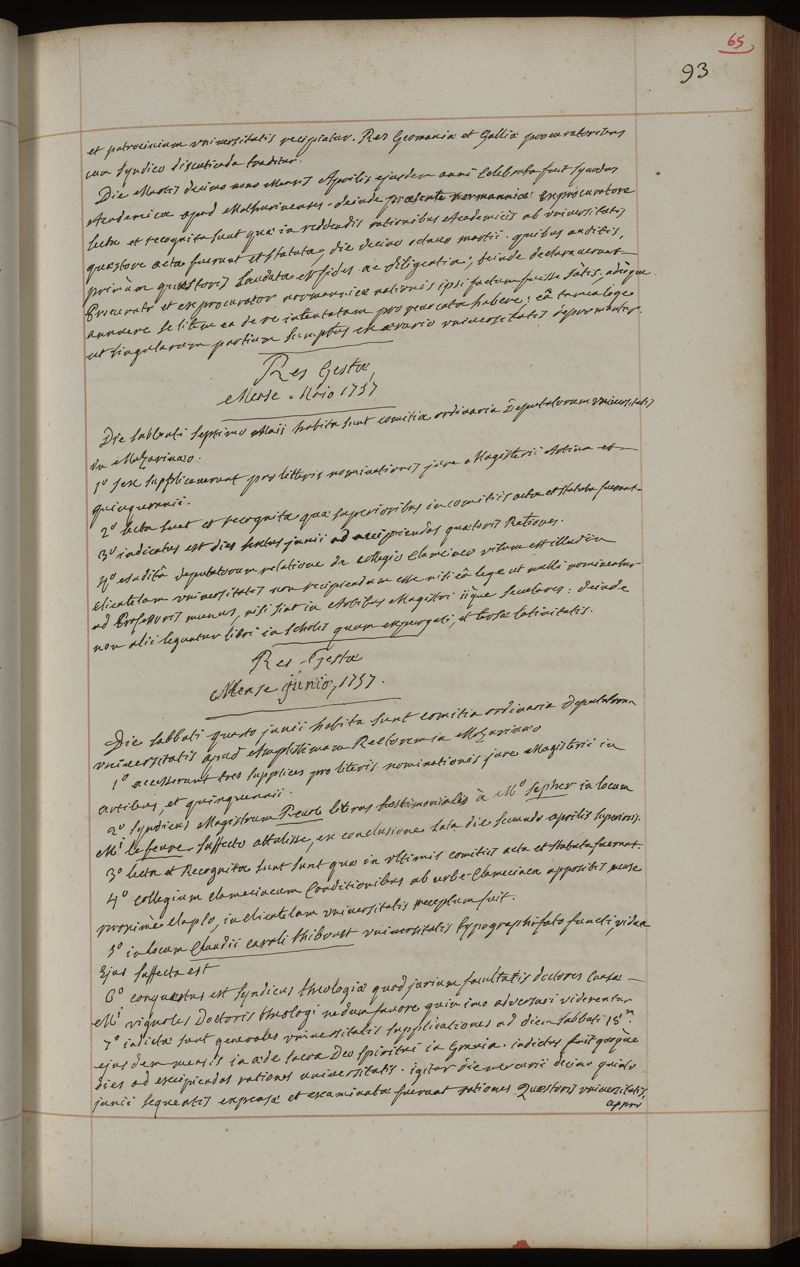 65
93
et patrocinium universitatis recipiatur. Res Germaniæ et Galliæ procuratoribus
cum syndico discutienda traditur.
Die Martis decimo nono Mensis Aprilis ejusdem anni Celebrata fuit synodus
Academica apud Mathurinenses. deinde præsente normanniæ exprocuratore
lecta et recognita sunt quæ in reddendis rationibus Academicis ab universitatis
quæstore acta fuerunt et statuta, die decimo octavo martii. quibus auditis,
primùm quæstoris laudata est fides ac diligentia; deinde declaraverunt
Procurator et exprocurator normannicæ nationis ipsi factum fuisse satis, adeoque
annuere se litem ea de re intentatam pro revocata habere; eâ tamen lege
ut singularum partium sumptus ex ærario universitatis depromantur.
Res Gestæ
Mense Maio 1757
Die sabbati septimo Maii habita sunt comitia ordinaria Deputatorum universitatis
in Mazarinæo.
1º sex supplicaverunt pro litteris nominationis jure Magisterii Artium et
quinquennii.
2º lecta sunt et recognita quæ superioribus in comitiis acta et statuta fuerant
3º indicatus est dies sextus junii ad accipiendas quæstoris Rationes.
4º exaudita deputatorum relatione de collegio Clameciaco visum est illud in
clientelam universitatis non recipiendum esse nisi eâ lege ut nulli nominentur
ad Professoris munus, nisi sint in Artibus Magistri iique seculares: deinde
non alii legantur libri in scholis quam expurgati, et tersæ latinitatis.
Res Gestæ
Mense junio, 1757.
Die sabbati quarto junii habita sunt comitia ordinaria Deputatorum
universitatis apud Amplissimum Rectorem in Mazarinæo
1º accesserunt tres supplices pro literis nominationis jure Magisterii in
artibus, et quinquennii.
2º syndicus Magistrum literas testimoniales à Mº Sepher in locum
Mi le feuvre suffecto attulisse, ex conclusione lata die secundo aprilis superioris.
3º lecta et Recognita sunt quæ in ultimis comitiis acta et statuta fuerant.
4º collegium clameciacum Conditionibus ab urbe Clameciaca appositis mense
proximè elapso, in clientelam universitatis receptum fuit.
5º in locum Claudii caroli thiboust universitatis typographi fato functi, vidua
Ejus suffecta est
6º conquæstus est syndicus theologiæ quod jurium facultatis doctores Causæ
Mi vignoles Doctoris theologi nedum favore quin imo adversari viderentur
7º indictæ sunt generales universitatis supplicationes ad diem sabbati 18m
ejusdem mensis in æde sacra Deo spiritui in Gravia. indictus fuit quoque
dies ad excipiendas rationes universitatis. igitur die mercurii decimo quinto
junii sequentis expensæ et examinatæ fuerunt rationes Quæstoris universitatis,
appro